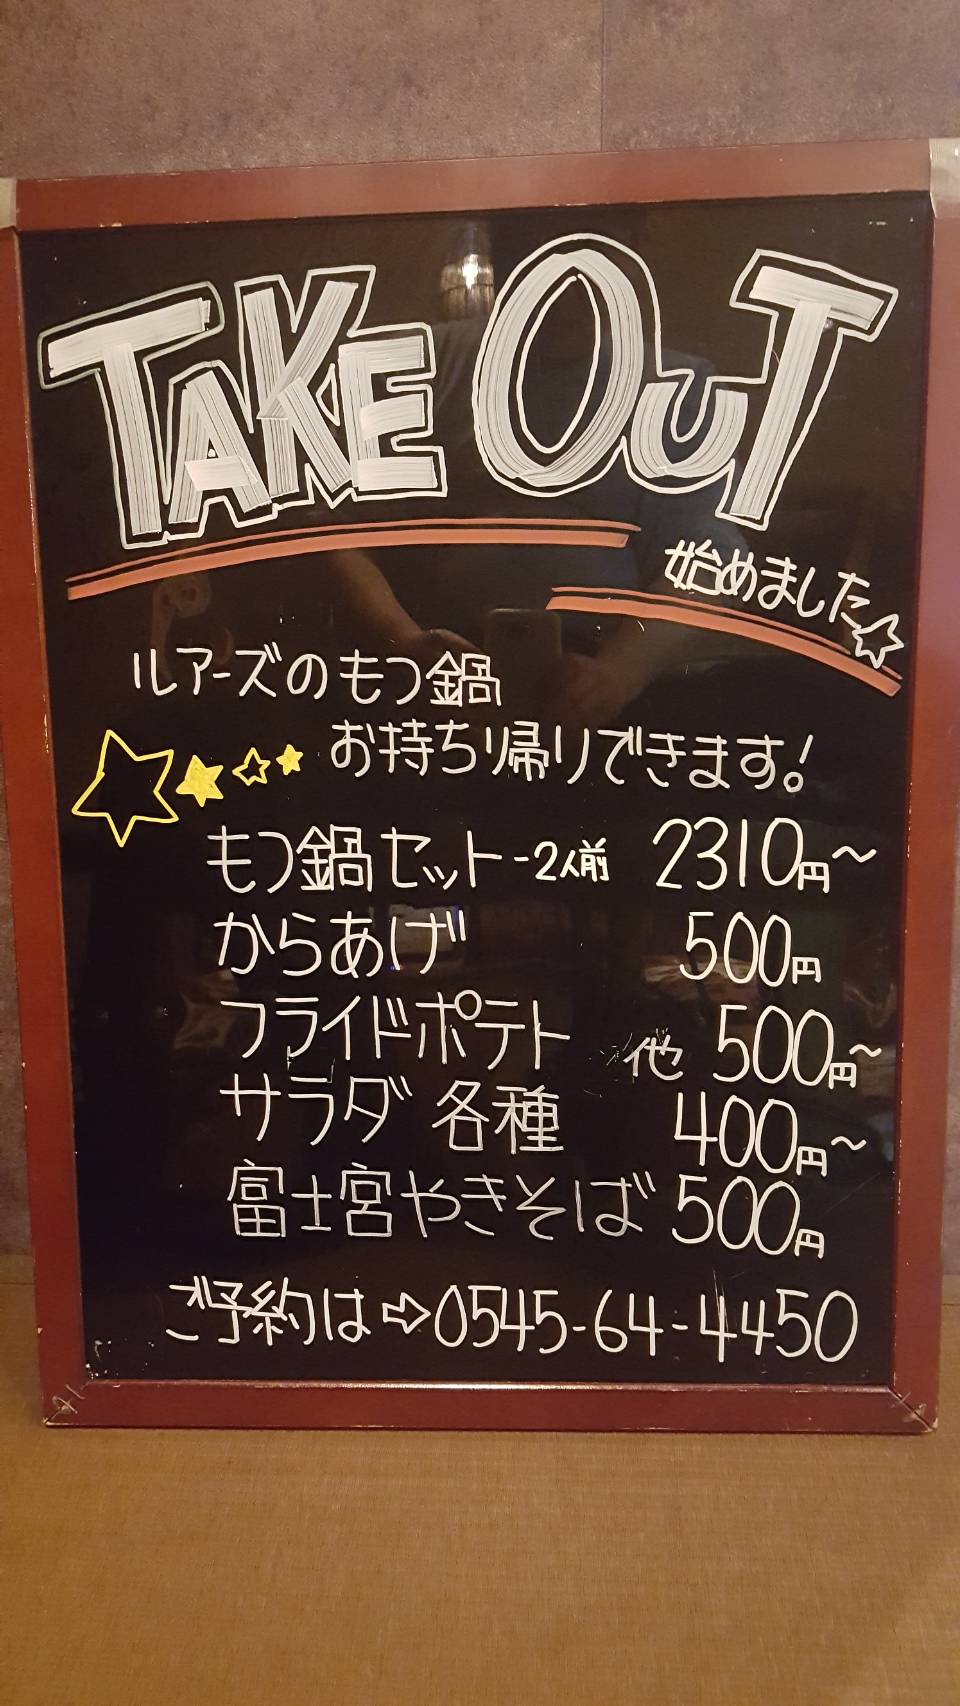 TAKE OUT
始めました☆
ルアーズのもつ鍋
お持ち帰りできます!
もつ鍋セット-2人前 2310円〜
からあげ 500円
フライドポテト 他 500円〜
サラダ 各種 400円〜
富士宮やきそば 500円
ご予約は⇨0545-64-4450